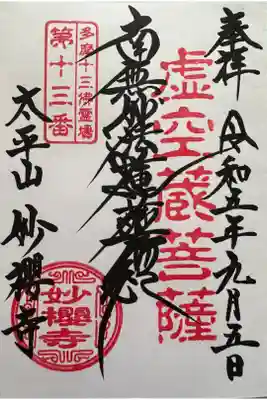 奉拝 令和五年九月五日
虚空蔵菩薩
南無妙法蓮華経
多摩十三佛霊場
第十三番
太平山 妙櫻寺
妙櫻寺